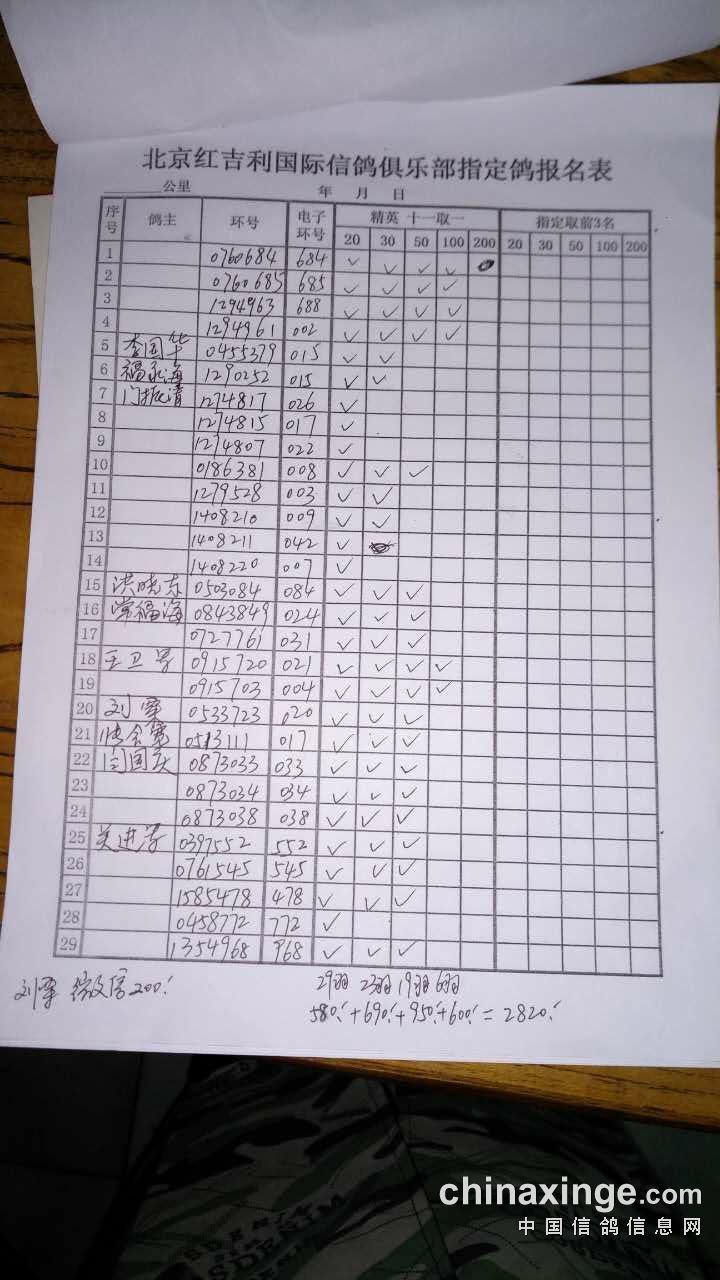 北京红吉利国际信鸽俱乐部指定鸽报名表
公里 年 月 日
序号 鸽主 环号 电子环号 精英 十一取一 指定取前3名
20 30 50 100 200 20 30 50 100 200
1 0760684 684 ✓ ✓ ✓ ✓
2 0760685 685 ✓ ✓ ✓ ✓
3 1294963 688 ✓ ✓ ✓ ✓
4 1294961 002 ✓ ✓ ✓ ✓
5 李国华 0455379 015 ✓ ✓
6 福永海 1290252 015 ✓ ✓
7 门振清 1274817 026 ✓
8 1274815 017 ✓
9 1274807 022 ✓
10 0186381 008 ✓ ✓ ✓
11 1279528 003 ✓ ✓
12 1408210 009 ✓ ✓
13 1408211 042 ✓
14 1408220 007 ✓
15 洪晓东 0503084 084 ✓ ✓ ✓
16 常福海 0843849 024 ✓ ✓ ✓
17 0727761 031 ✓ ✓ ✓
18 王卫 0915720 021 ✓ ✓ ✓ ✓
19 0915703 004 ✓ ✓ ✓ ✓
20 刘军 0533723 020 ✓ ✓ ✓
21 0513111 017 ✓ ✓ ✓
22 闫国庆 0873033 033 ✓ ✓ ✓
23 0873034 034 ✓ ✓ ✓
24 0873038 038 ✓ ✓ ✓
25 关进 0397552 552 ✓ ✓ ✓
26 0761545 545 ✓ ✓ ✓
27 1585478 478 ✓ ✓ ✓
28 0458772 772 ✓
29 1354968 968 ✓ ✓ ✓
29羽 23羽 19羽 6羽
刘军 微信200.
580.+690.+950.+600.=2820.
chinaxinge.com
中国信鸽信息网